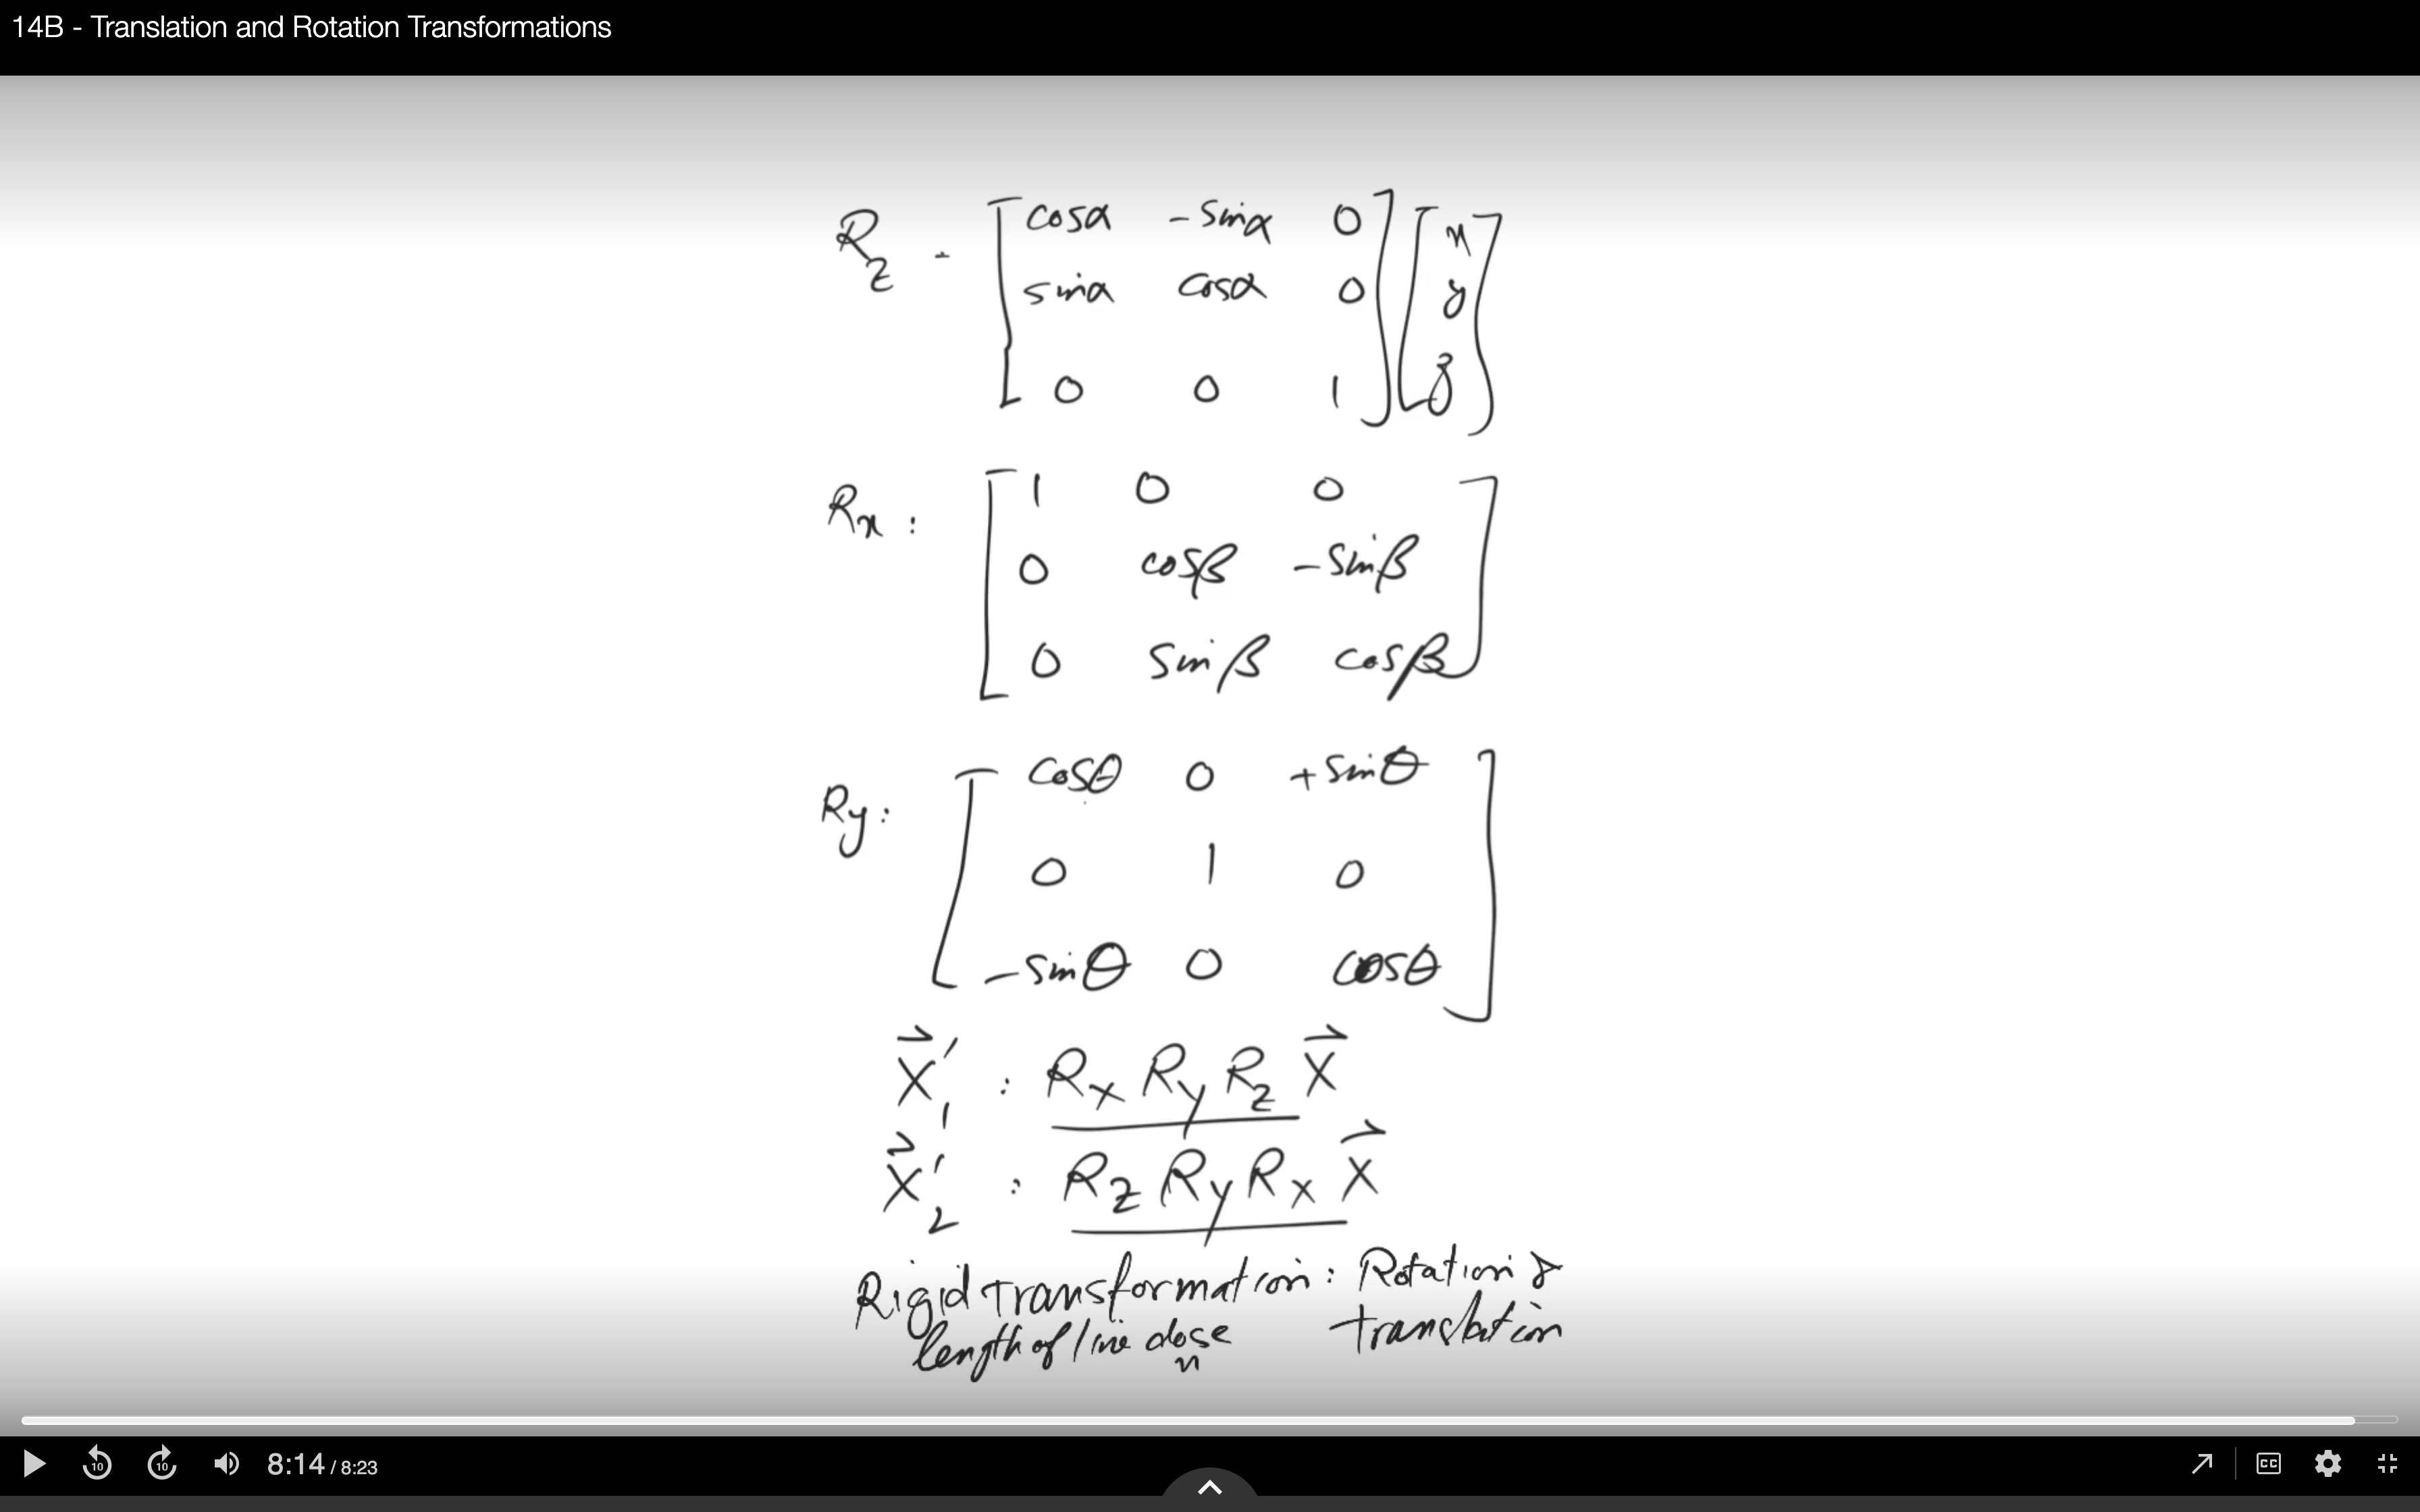 14B - Translation and Rotation Transformations
R_z = [ cosα -sinα 0 ] [ x ]
[ sinα cosα 0 ] [ y ]
[ 0 0 1 ] [ z ]
Rx : [ 1 0 0 ]
[ 0 cosβ -sinβ ]
[ 0 sinβ cosβ ]
Ry : [ cosθ 0 +sinθ ]
[ 0 1 0 ]
[ -sinθ 0 cosθ ]
X⃗'₁ : Rx Ry Rz X⃗
X⃗'₂ : Rz Ry Rx X⃗
Rigid transformation : Rotation &
length of line translation
10 10 8:14 / 8:23 CC